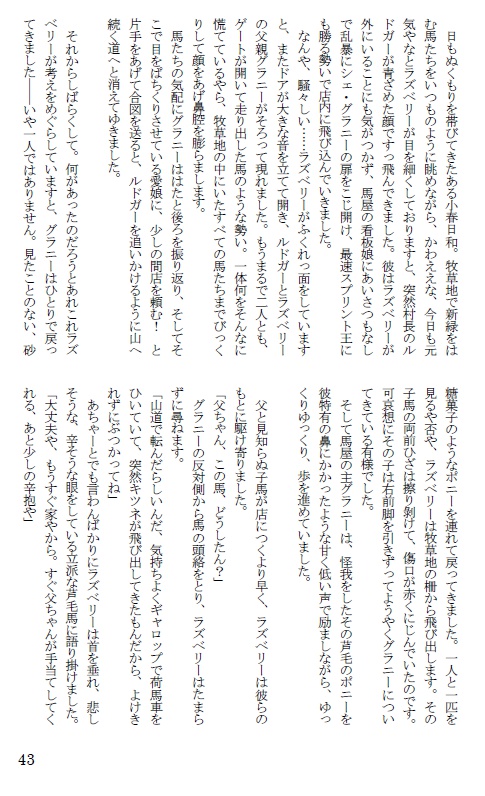 日もぬくもりを帯びてきたある小春日和。牧草地で新緑をは
む馬たちをいつものように眺めながら、かわええな、今日も元
気やなとラズベリーが目を細くしておりますと、突然村長のル
ドガーが青ざめた顔ですっ飛んできました。彼はラズベリーが
外にいることにも気がつかず、馬屋の看板娘にあいさつもなし
で乱暴にシェ・グラニーの扉をこじ開け、最速スプリント王に
も勝る勢いで店内に飛び込んでいきました。
　なんや、騒々しい……ラズベリーがふくれっ面をしています
と、またドアが大きな音を立てて開き、ルドガーとラズベリー
の父親グラニーがそろって現れました。もうまるで二人とも、
ゲートが開いて走り出した馬のような勢い。一体何をそんなに
慌てているやら、牧草地の中にいたすべての馬たちまでびっく
りして顔をあげ鼻腔を膨らまします。
　馬たちの気配にグラニーははたと後ろを振り返り、そしてそ
こで目をぱちくりさせている愛娘に、少しの間店を頼む！　と
片手をあげて合図を送ると、ルドガーを追いかけるように山へ
続く道へと消えてゆきました。
　それからしばらくして。何があったのだろうとあれこれラズ
ベリーが考えをめぐらしていますと、グラニーはひとりで戻っ
てきました――いや一人ではありません。見たことのない、砂
糖菓子のようなポニーを連れて戻ってきました。一人と一匹を
見るや否や、ラズベリーは牧草地の柵から飛び出します。その
子馬の両前ひざは擦り剝けて、傷口が赤くにじんでいたのです。
可哀想にその子は右前脚を引きずってようやくグラニーについ
てきている有様でした。
　そして馬屋の主グラニーは、怪我をしたその芦毛のポニーを
彼特有の鼻にかかったような甘く低い声で励ましながら、ゆっ
くりゆっくり、歩を進めていました。
　父と見知らぬ子馬が店につくより早く、ラズベリーは彼らの
もとに駆け寄りました。
「父ちゃん、この馬、どうしたん？」
　グラニーの反対側から馬の頭絡をとり、ラズベリーはたまら
ずに尋ねます。
「山道で転んだらしいんだ、気持ちよくギャロップで荷馬車を
ひいていて、突然キツネが飛び出してきたもんだから、よけき
れずにぶつかってね」
　あちゃーとでも言わんばかりにラズベリーは首を垂れ、悲し
そうな、辛そうな眼をしている立派な芦毛馬に語り掛けました。
「大丈夫や、もうすぐ家やから。すぐ父ちゃんが手当てしてく
れる、あと少しの辛抱や」
43